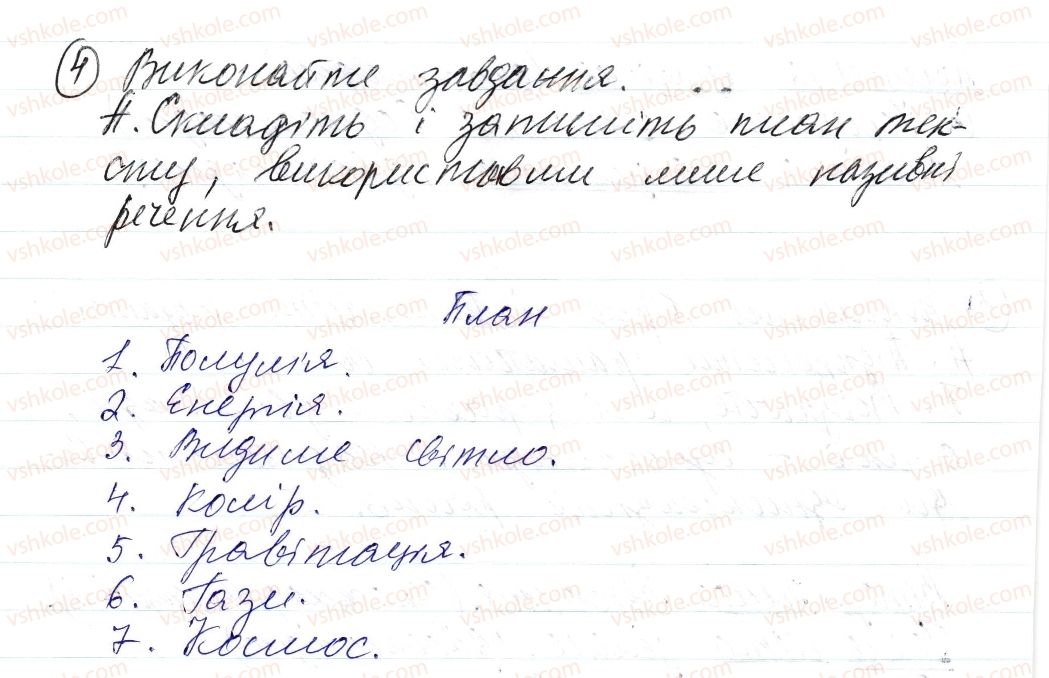 4 Виконайте завдання.
А. Складіть і запишіть план тек-
сту, використавши лише називні
речення.
План
1. Полумія.
2. Енергія.
3. Видиме світло.
4. Колір.
5. Гравітація.
6. Гази.
7. Космос.
vshkole.com